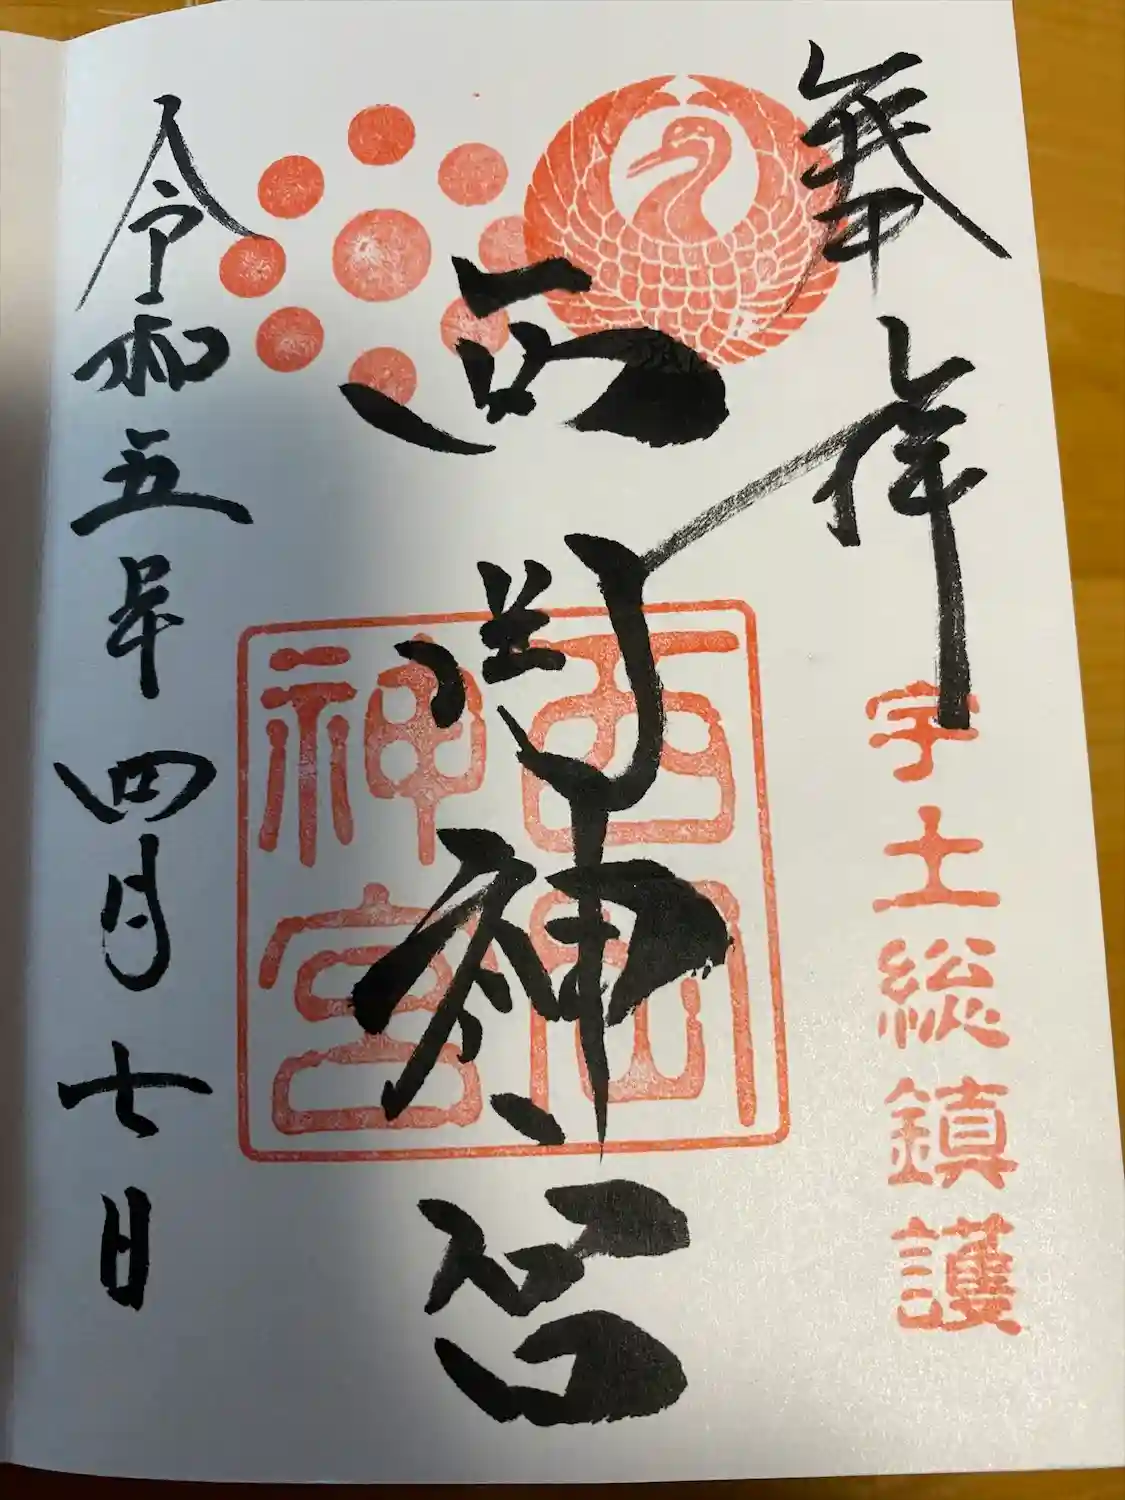 奉拝
宇土総鎮護
西岡神宮
西岡
神宮
令和五年四月七日